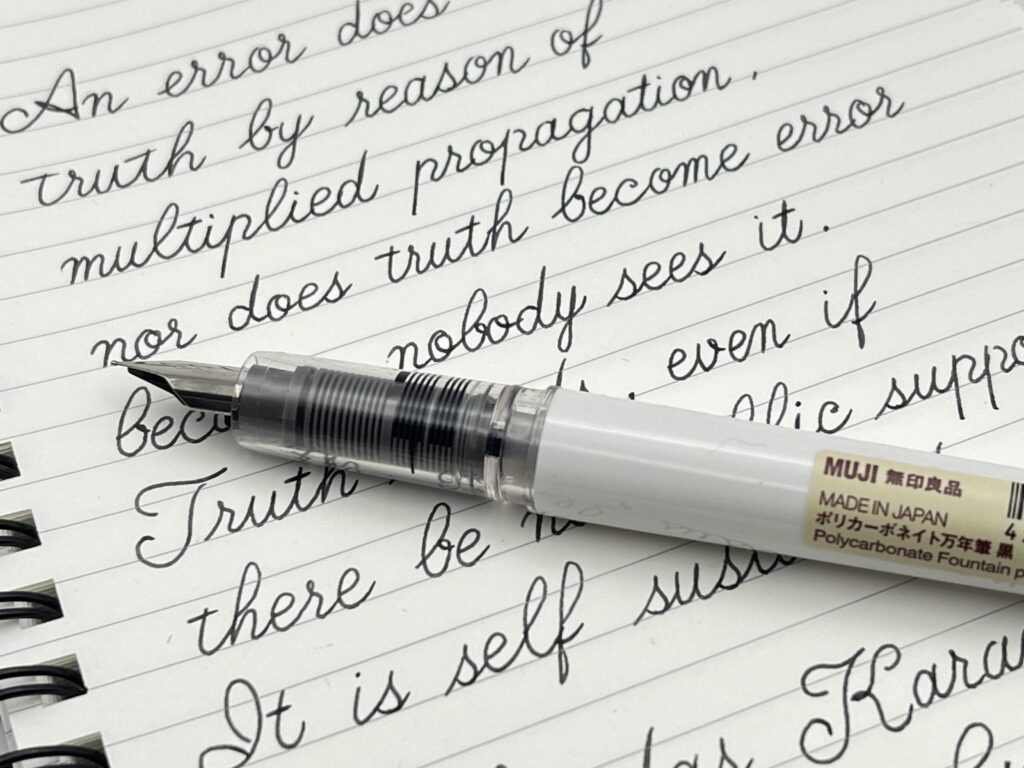 An error does
truth by reason of
multiplied propagation.
nor does truth become error
nobody sees it.
Truth even if
there be
It is self
MUJI 無印良品
MADE IN JAPAN
ポリカーボネイト万年筆 黒
Polycarbonate Fountain